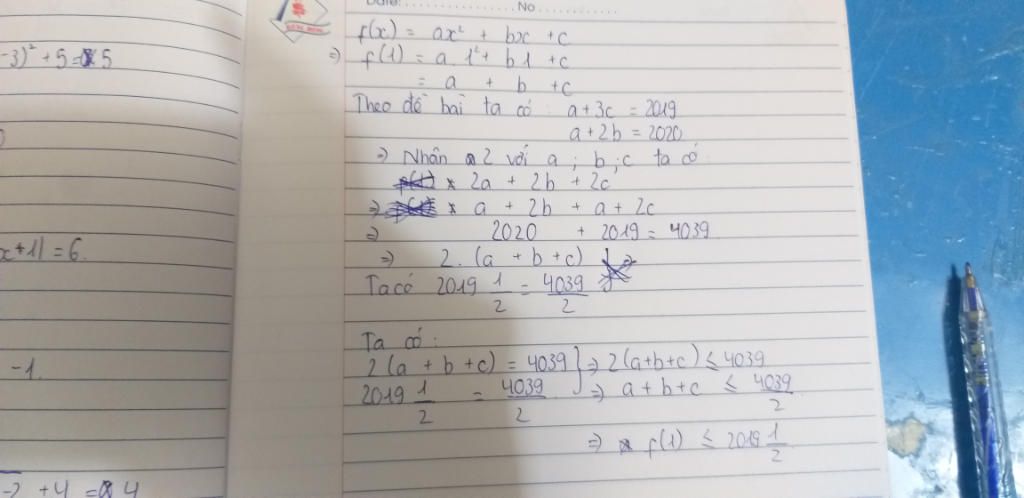 Date: No
-3)² + 5 = 5
x+1| = 6.
-1.
-2 + 4 = 4
f(x) = ax² + bx + c
=> f(1) = a.1² + b1 + c
= a + b + c
Theo đề bài ta có: a + 3c = 2019
a + 2b = 2020
=> Nhân 2 với a; b; c ta có
* 2a + 2b + 2c
=> * a + 2b + a + 2c
=> 2020 + 2019 = 4039
=> 2.(a + b + c)
Ta có 2019 1/2 = 4039/2
Ta có:
2(a + b + c) = 4039 } => 2(a+b+c) ≤ 4039
2019 1/2 = 4039/2 => a + b + c ≤ 4039/2
=> f(1) ≤ 2019 1/2